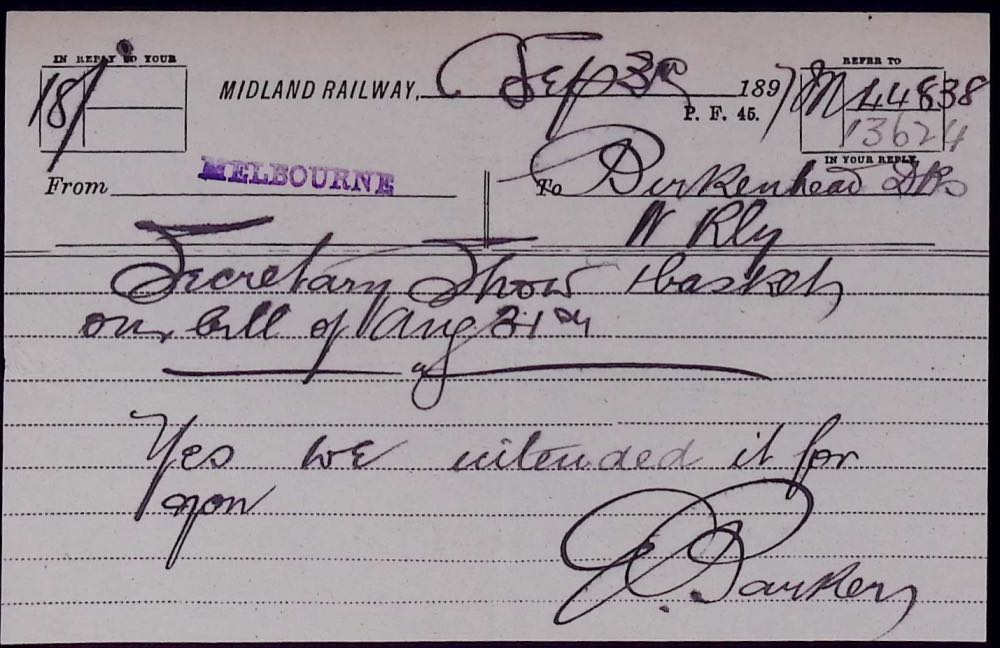 IN REPLY TO YOUR
REFER TO
18/
MIDLAND RAILWAY, Sep 3rd 1897
M 44838
P. F. 45.
13624
IN YOUR REPLY.
From MELBOURNE To Birkenhead Dks
N Rly
Secretary Show Haskets
our bill of Aug 31st
Yes we intended it for
you
E. Parker